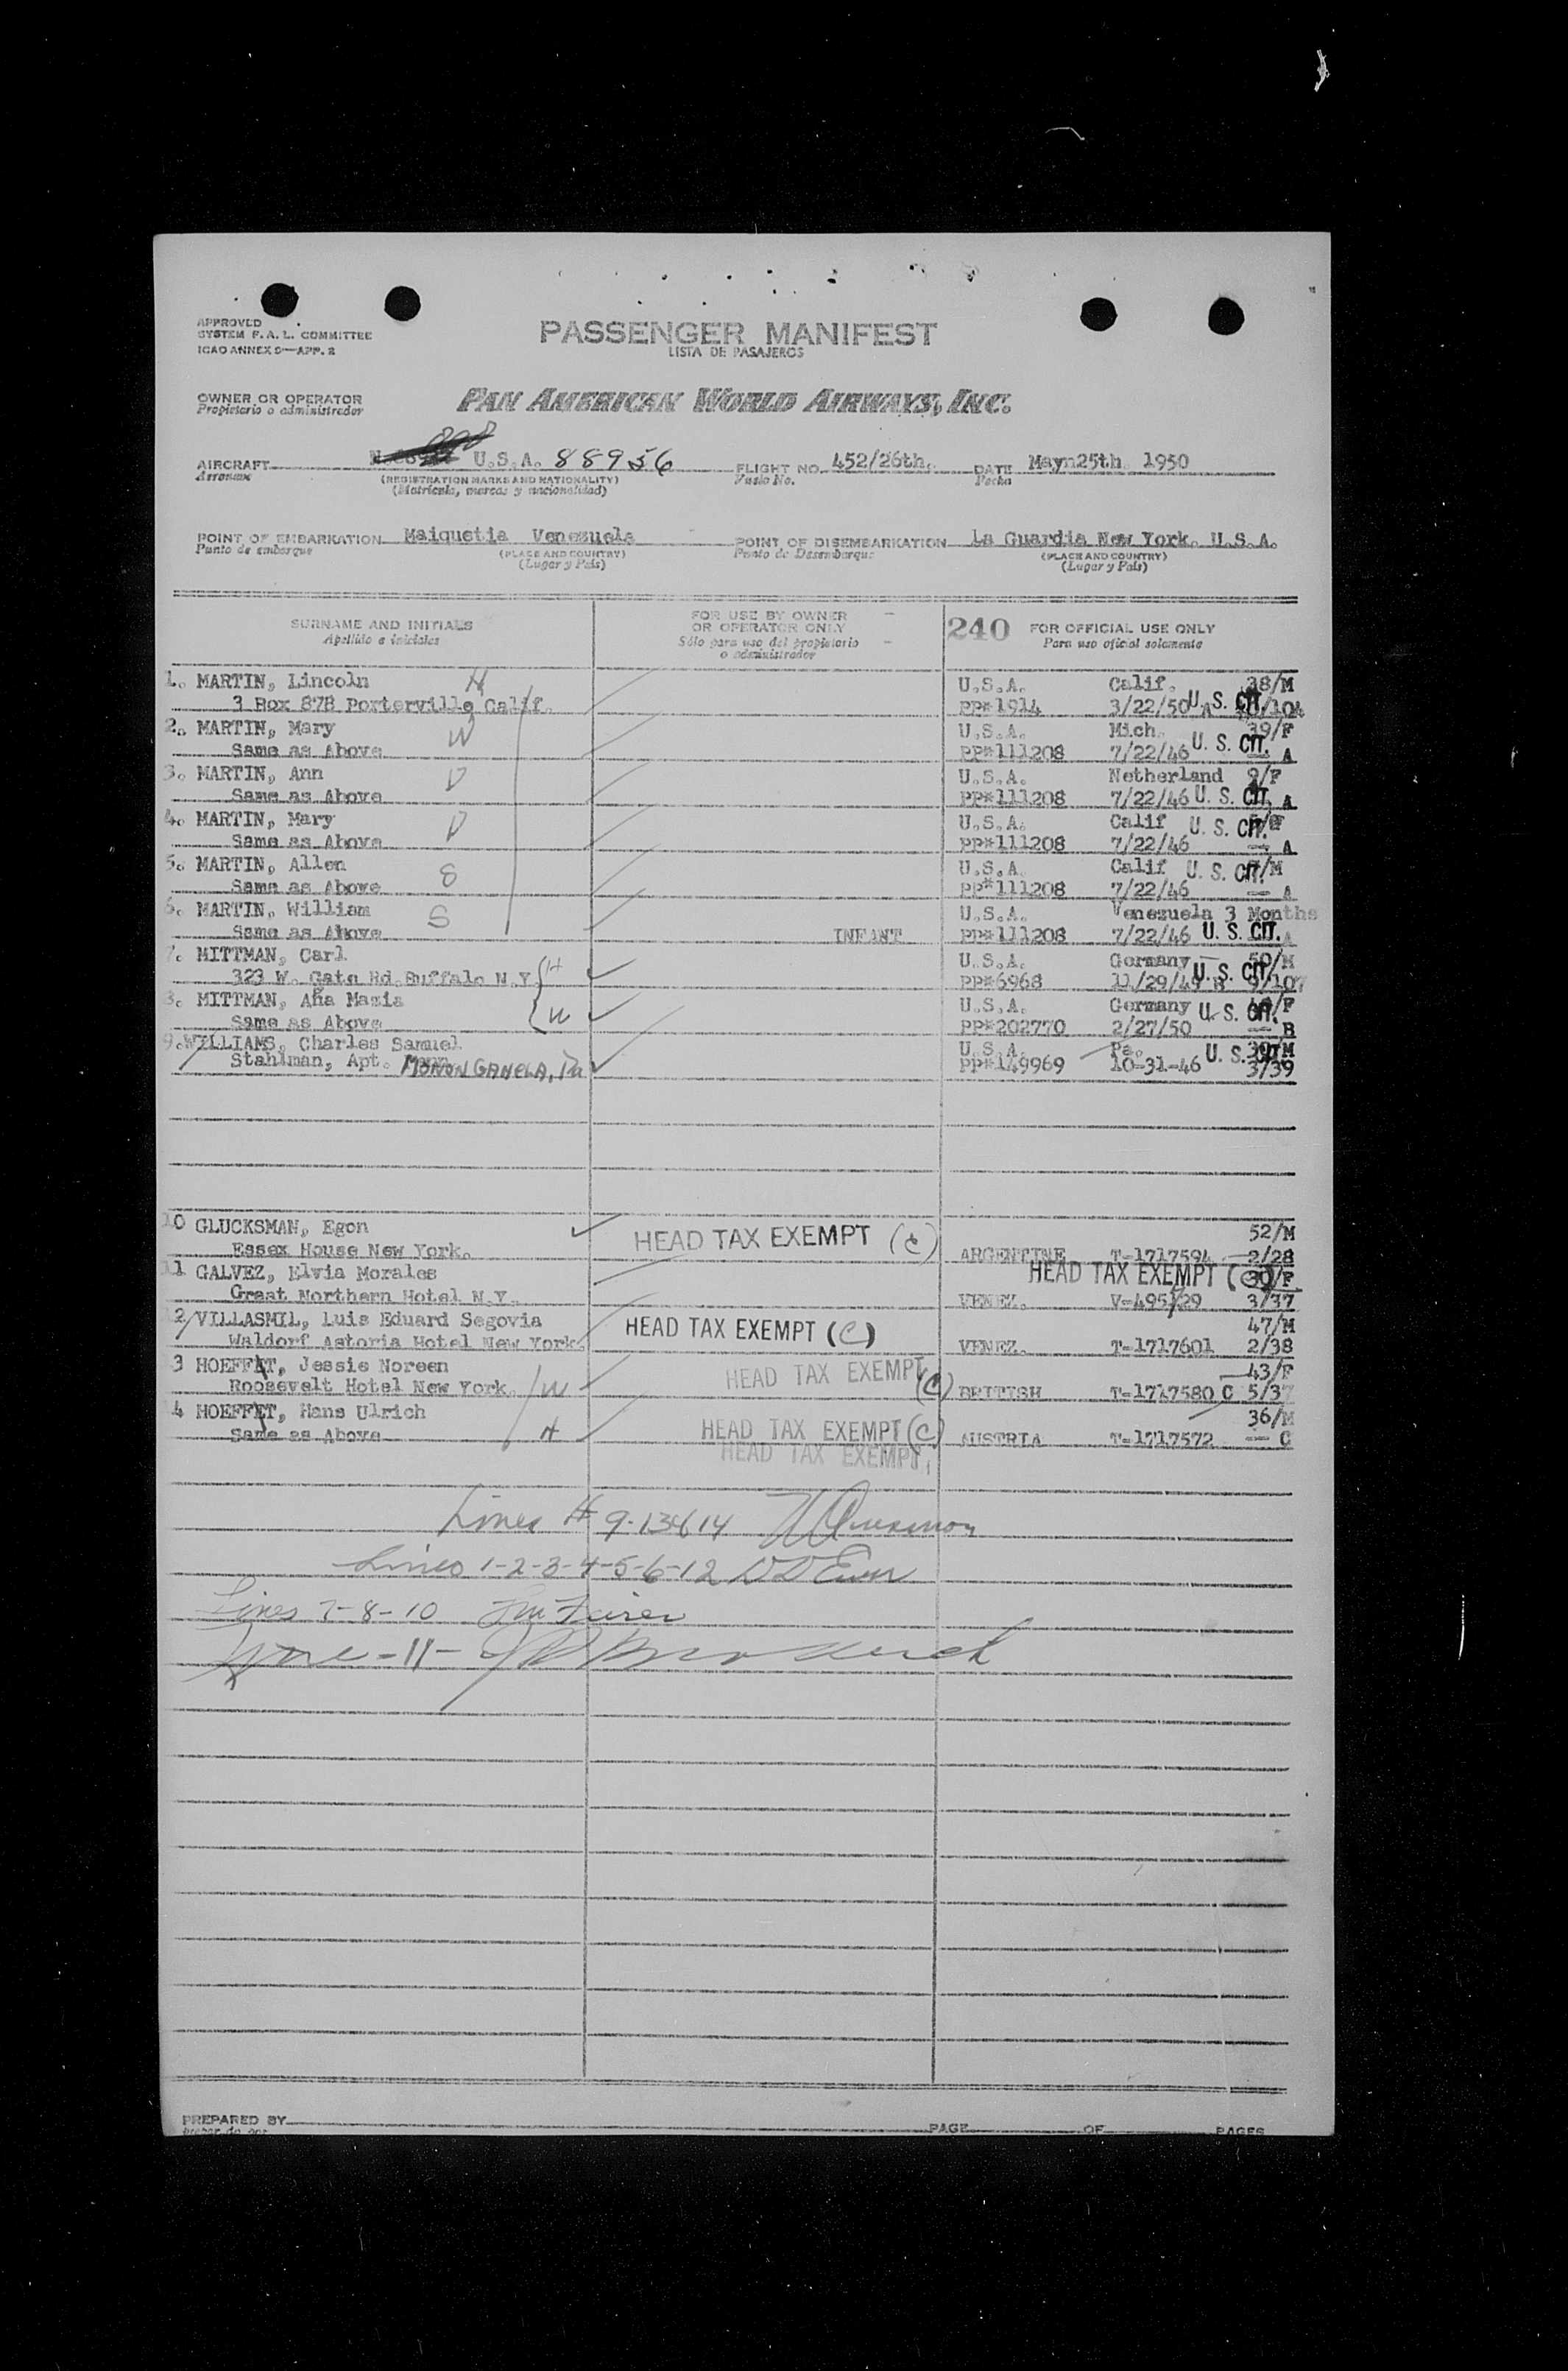 APPROVED
SYSTEM F. A. L. COMMITTEE
ICAO ANNEX 9—APP. 2
PASSENGER MANIFEST
LISTA DE PASAJEROS
OWNER OR OPERATOR
Propietario o administrador
PAN AMERICAN WORLD AIRWAYS, INC.
AIRCRAFT U.S.A. 88956 FLIGHT NO. 452/26th. DATE Mayn25th 1950
Aeronave (REGISTRATION MARKS AND NATIONALITY) Vuelo No. Fecha
(Matrícula, marcas y nacionalidad)
POINT OF EMBARKATION Maiquetia Venezuela POINT OF DISEMBARKATION La Guardia New York. U.S.A.
Punto de embarque (PLACE AND COUNTRY) Punto de Desembarque (PLACE AND COUNTRY)
(Lugar y País) (Lugar y País)
SURNAME AND INITIALS FOR USE BY OWNER OR OPERATOR ONLY 240 FOR OFFICIAL USE ONLY
Apellido e iniciales Sólo para uso del propietario o administrador Para uso oficial solamente
1. MARTIN, Lincoln H U.S.A. Calif. 38/M
3 Box 87B Porterville Calif. PP*1914 3/22/50 U. S. CIT.
2. MARTIN, Mary W U.S.A. Mich. 39/F
Same as Above PP*111208 7/22/46 U. S. CIT. A
3. MARTIN, Ann D U.S.A. Netherland 9/F
Same as Above PP*111208 7/22/46 U. S. CIT. A
4. MARTIN, Mary D U.S.A. Calif U. S. CIT.
Same as Above PP*111208 7/22/46 — A
5. MARTIN, Allen S U.S.A. Calif U. S. CIT. /M
Same as Above PP*111208 7/22/46 — A
6. MARTIN, William S U.S.A. Venezuela 3 Months
Same as Above INFANT PP*111208 7/22/46 U. S. CIT. A
7. MITTMAN, Carl U.S.A. Germany 50/M
323 W. Gate Rd. Buffalo N.Y. H PP*6968 11/29/49 B U. S. CIT. 9/107
8. MITTMAN, Ana Maria U.S.A. Germany U. S. CIT. /F
Same as Above W PP*202770 2/27/50 — B
9. WILLIAMS, Charles Samuel U.S.A. Pa. U. S. CIT. 39/M
Stahlman, Apt. MONONGAHELA, Pa PP*149969 10-31-46 3/39
10 GLUCKSMAN, Egon HEAD TAX EXEMPT (C) 52/M
Essex House New York. ARGENTINE T-1717594 2/28
11 GALVEZ, Elvia Morales HEAD TAX EXEMPT (C) 30/F
Great Northern Hotel N.Y. VENEZ. V-495/29 3/37
12 VILLASMIL, Luis Eduard Segovia HEAD TAX EXEMPT (C) 47/M
Waldorf Astoria Hotel New York. VENEZ. T-1717601 2/38
3 HOEFFET, Jessie Noreen HEAD TAX EXEMPT (C) 43/F
Roosevelt Hotel New York W BRITISH T-1717580 C 5/37
4 HOEFFET, Hans Ulrich HEAD TAX EXEMPT (C) 36/M
Same as Above H AUSTRIA T-1717572 — C
HEAD TAX EXEMPT
Lines # 9-13&14
Lines 1-2-3-4-5-6-12
Lines 7-8-10
Line -11-
PREPARED BY PAGE OF PAGES